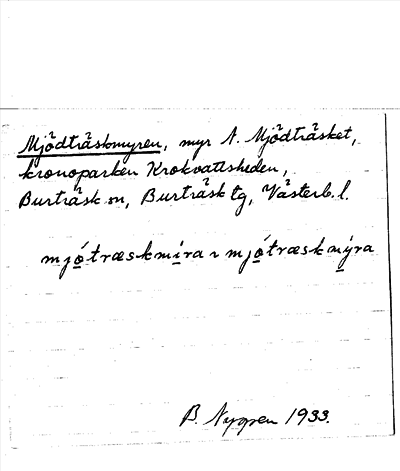 Mjödträskmyren, myr N. Mjödträsket,
kronoparken Krokvattsheden,
Burträsk sn, Burträsk tg, Västerb. l.
mjǫ́træskmi̱ra ~ mjǫ́træskmýra
B. Nygren 1933.